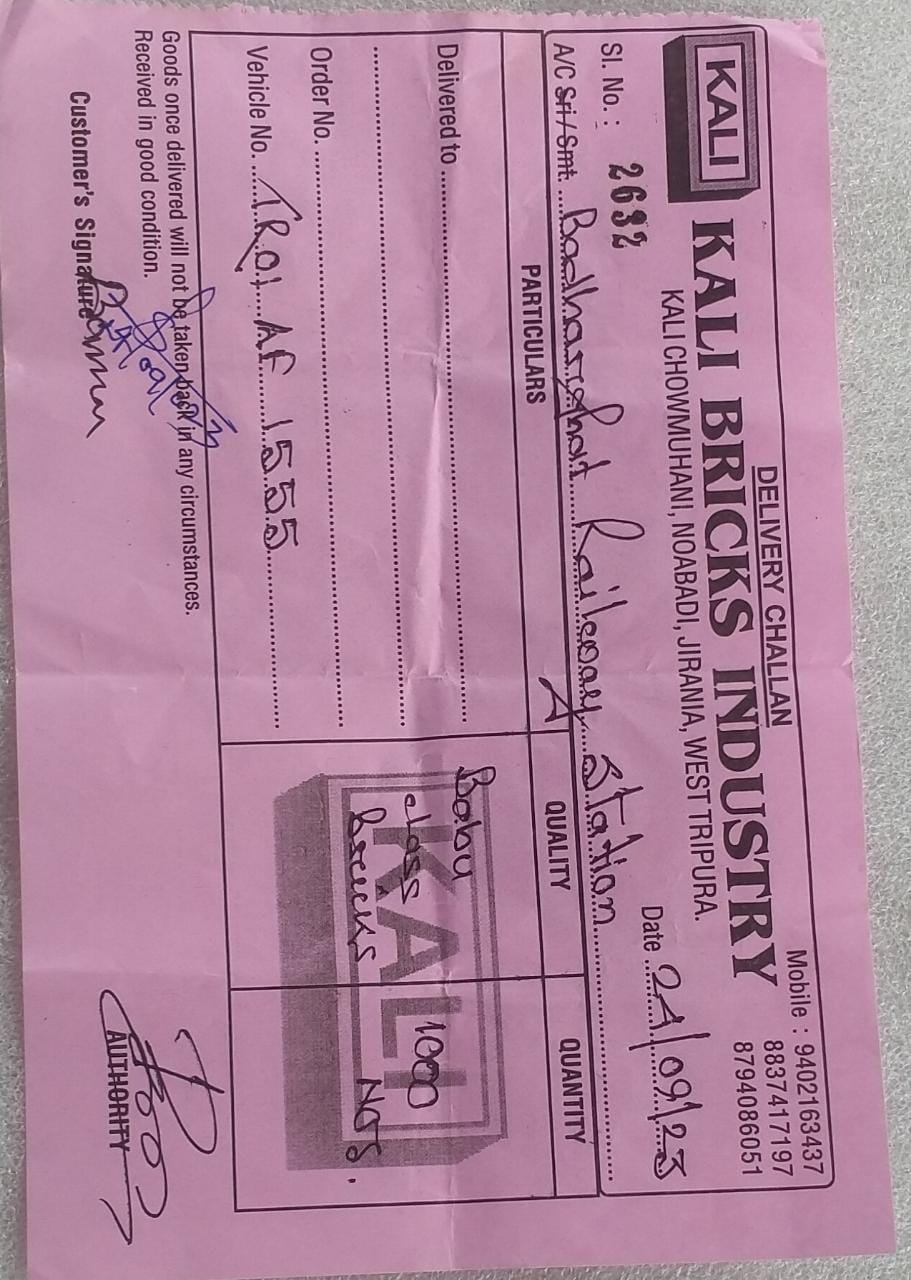 DELIVERY CHALLAN
Mobile : 9402163437
8837417197
8794086051
KALI
KALI BRICKS INDUSTRY
KALI CHOWMUHANI, NOABADI, JIRANIA, WEST TRIPURA.
Sl. No. : 2632
Date 24/09/23
A/C Sri/Smt. Badharghat Railway Station
PARTICULARS QUALITY QUANTITY
A
Delivered to
Babu
class
bricks
1000
NOS
KALI
Order No.
Vehicle No. TR01 AF 1555
Goods once delivered will not be taken back in any circumstances.
Received in good condition.
Customer's Signature
AUTHORITY